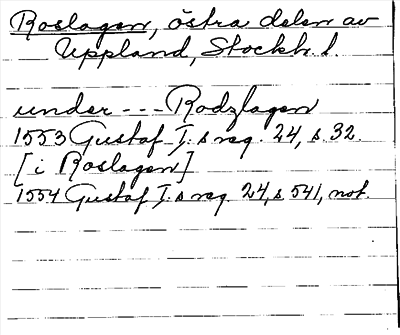 Roslagen, östra delen av
Uppland, Stockh. l.
under --- Rodzlagen
1553 Gustaf I:s reg. 24, s. 32.
[i Roslagen]
1554 Gustaf I:s reg. 24, s 541, not.